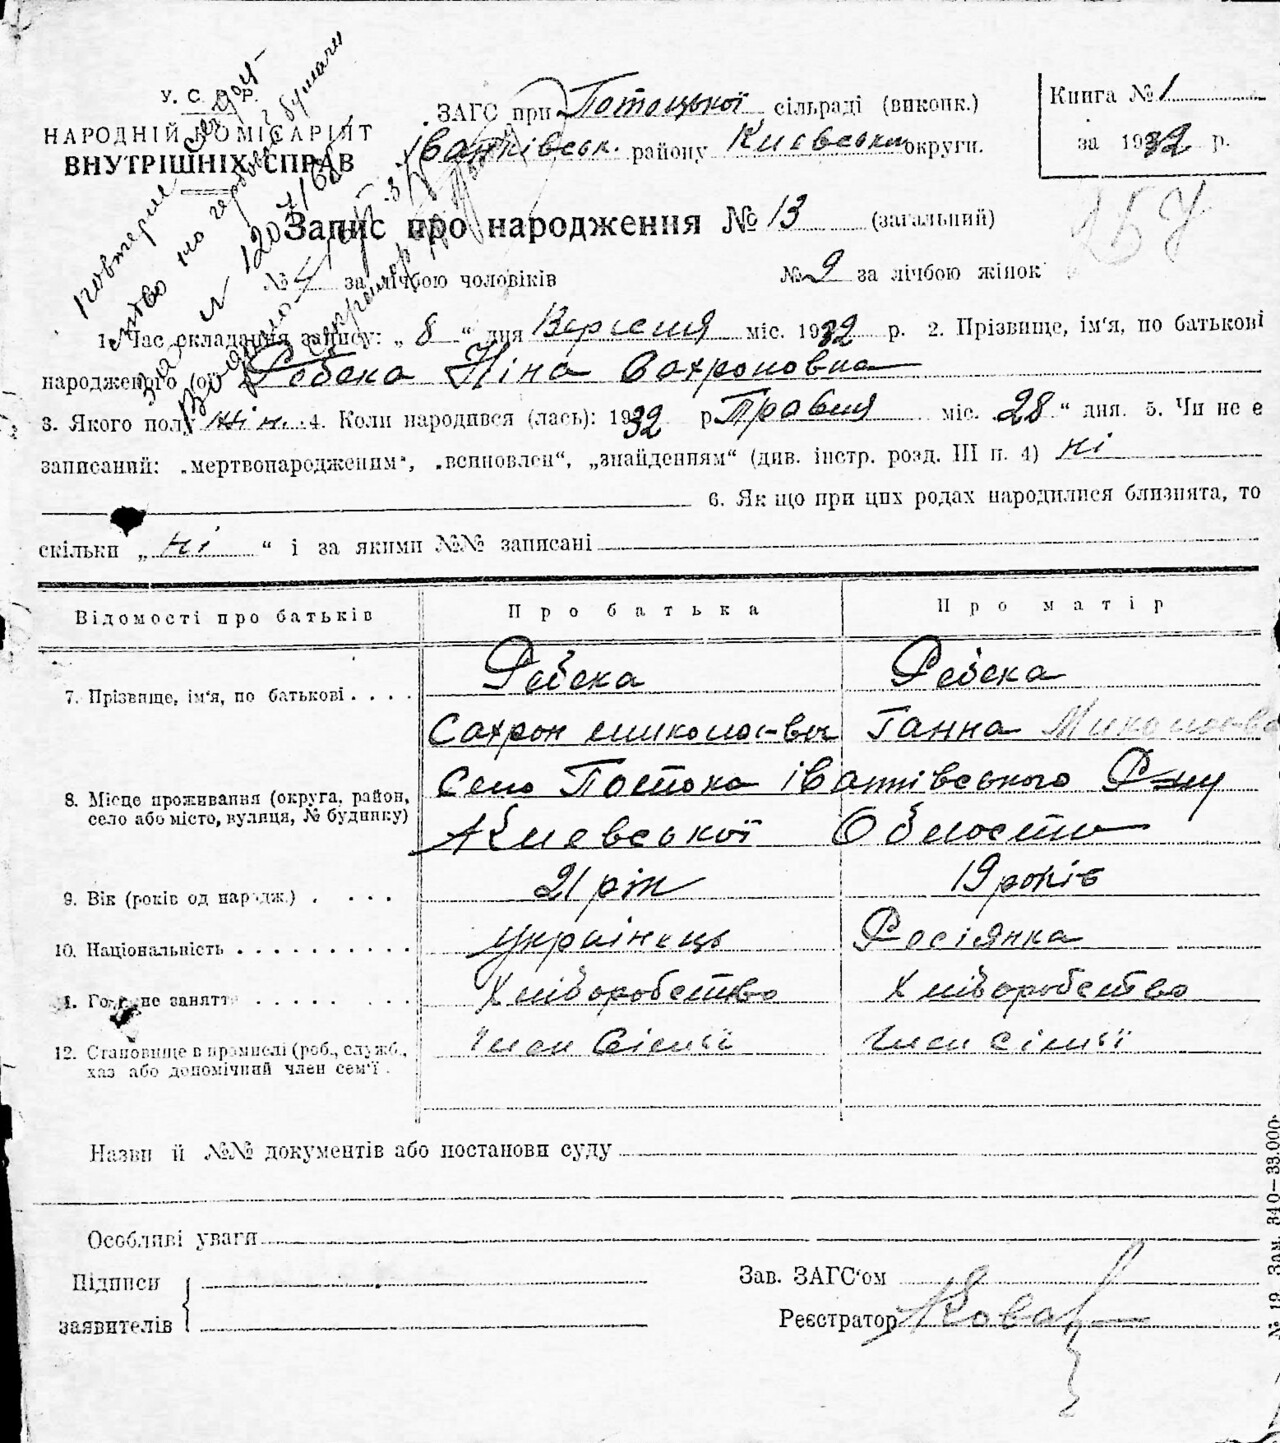 У. С. Р. Р.
НАРОДНІЙ КОМІСАРІЯТ
ВНУТРІШНІХ СПРАВ
ЗАГС при Потоцької сільраді (виконк.)
Іванківськ. району Києвськи округи.
Книга № 1
за 1932 р.
Запис про народження № 13 (загальний)
№ 4 за лічбою чоловіків № 9 за лічбою жінок
1. Час складання запису: „ 8 “ дня Вересня міс. 1932 р. 2. Прізвище, ім'я, по батькові
народженого (ої) Ребека Ніна Сахроновна
3. Якого полу жін. 4. Коли народився (лась): 1932 р. Травня міс. 28 “ дня. 5. Чи не є
записаний: „мертвонародженим“, „всиновлен“, „знайденням“ (див. інстр. розд. III п. 4) ні
6. Як що при цих родах народилися близнята, то
скільки „ ні “ і за якими №№ записані
Відомості про батьків Про батька Про матір
7. Прізвище, ім'я, по батькові Ребека Ребека
Сахрон Ганна
8. Місце проживання (округа, район, село або місто, вулиця, № будинку) Село Потока Іванківського Р-ну
Києвської Області
9. Вік (років од народж.) 21 рік 19 років
10. Національність українець Росіянка
11. Головне заняття Хліборобство Хліборобство
12. Становище в промислі (роб., служб., Член Сімьї Член сімьї
хаз або допомічний член сем'ї.
Назви й №№ документів або постанови суду
Особливі уваги
Підписи
заявителів
Зав. ЗАГС'ом
Реєстратор
№ 19 Зам. 340—33.000.